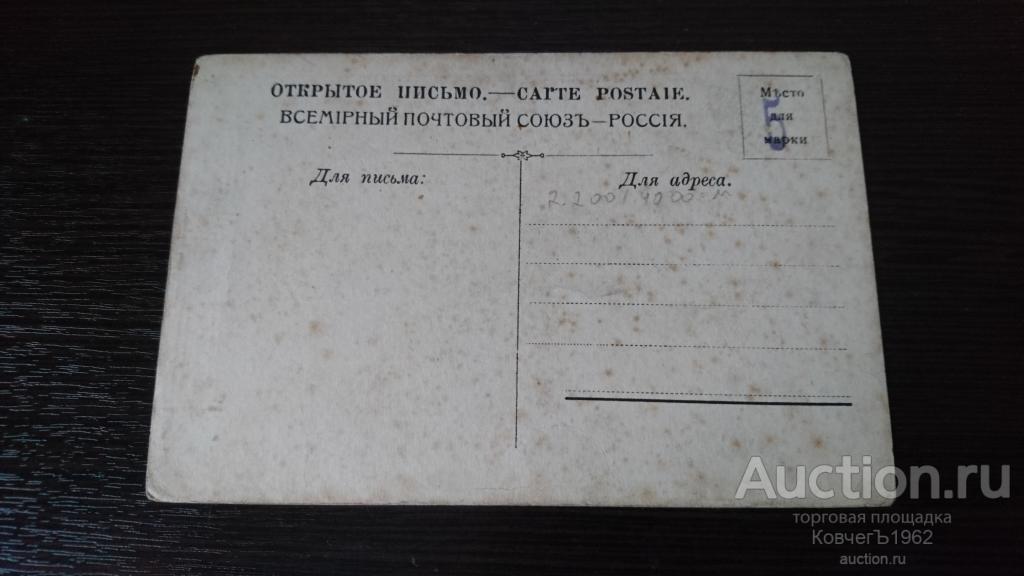 ОТКРЫТОЕ ПИСЬМО.—CARTE POSTALE.
ВСЕМІРНЫЙ ПОЧТОВЫЙ СОЮЗЪ—РОССІЯ.
Мѣсто
для
марки
5
Для письма:
Для адреса.
Auction.ru
торговая площадка
КовчегЪ1962
auction.ru